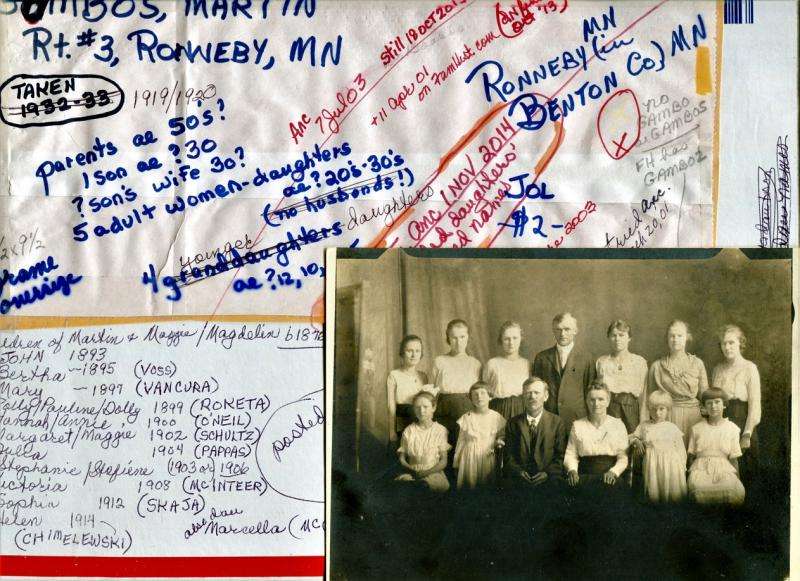 GAMBOS, MARTIN
Rt. #3, RONNEBY, MN
TAKEN
1932-33
1919/1920
Anc 7 Jul 03 still 18 OCT 2013
+ 11 apr 01
on FamHist.com
RONNEBY MN
(in
BENTON Co) MN
X
no
GAMBO
GAMBOS
FH has
GAMBOZ
parents ae 50s?
1 son ae ? 30
? son's wife 30?
5 adult women-daughters
ae ? 20's-30's
(no husbands!)
younger daughters
4 granddaughters
ae ? 12, 10,
Anc 1 NOV 2014
daughters'
names
JOL
$2-
2003
tried anc.
20, 01
x 9 1/2
frame
oversize
Children of Martin & Maggie/Magdelin b 187
JOHN 1893
Bertha - 1895 (VOSS)
Mary - 1897 (VANCURA)
Polly/Pauline/Dolly 1899 (ROKETA)
Hannah/Annie, 1900 (O'NEIL)
Margaret/Maggie 1902 (SCHULTZ)
Julia 1904 (PAPPAS)
Stephanie/Stefiene 1903 or 1906
Victoria 1908 (McINTEER)
Sophia 1912 (SKAJA)
Helen 1914
(CHIMELEWSKI)
also dau
Marcella (MC
posted